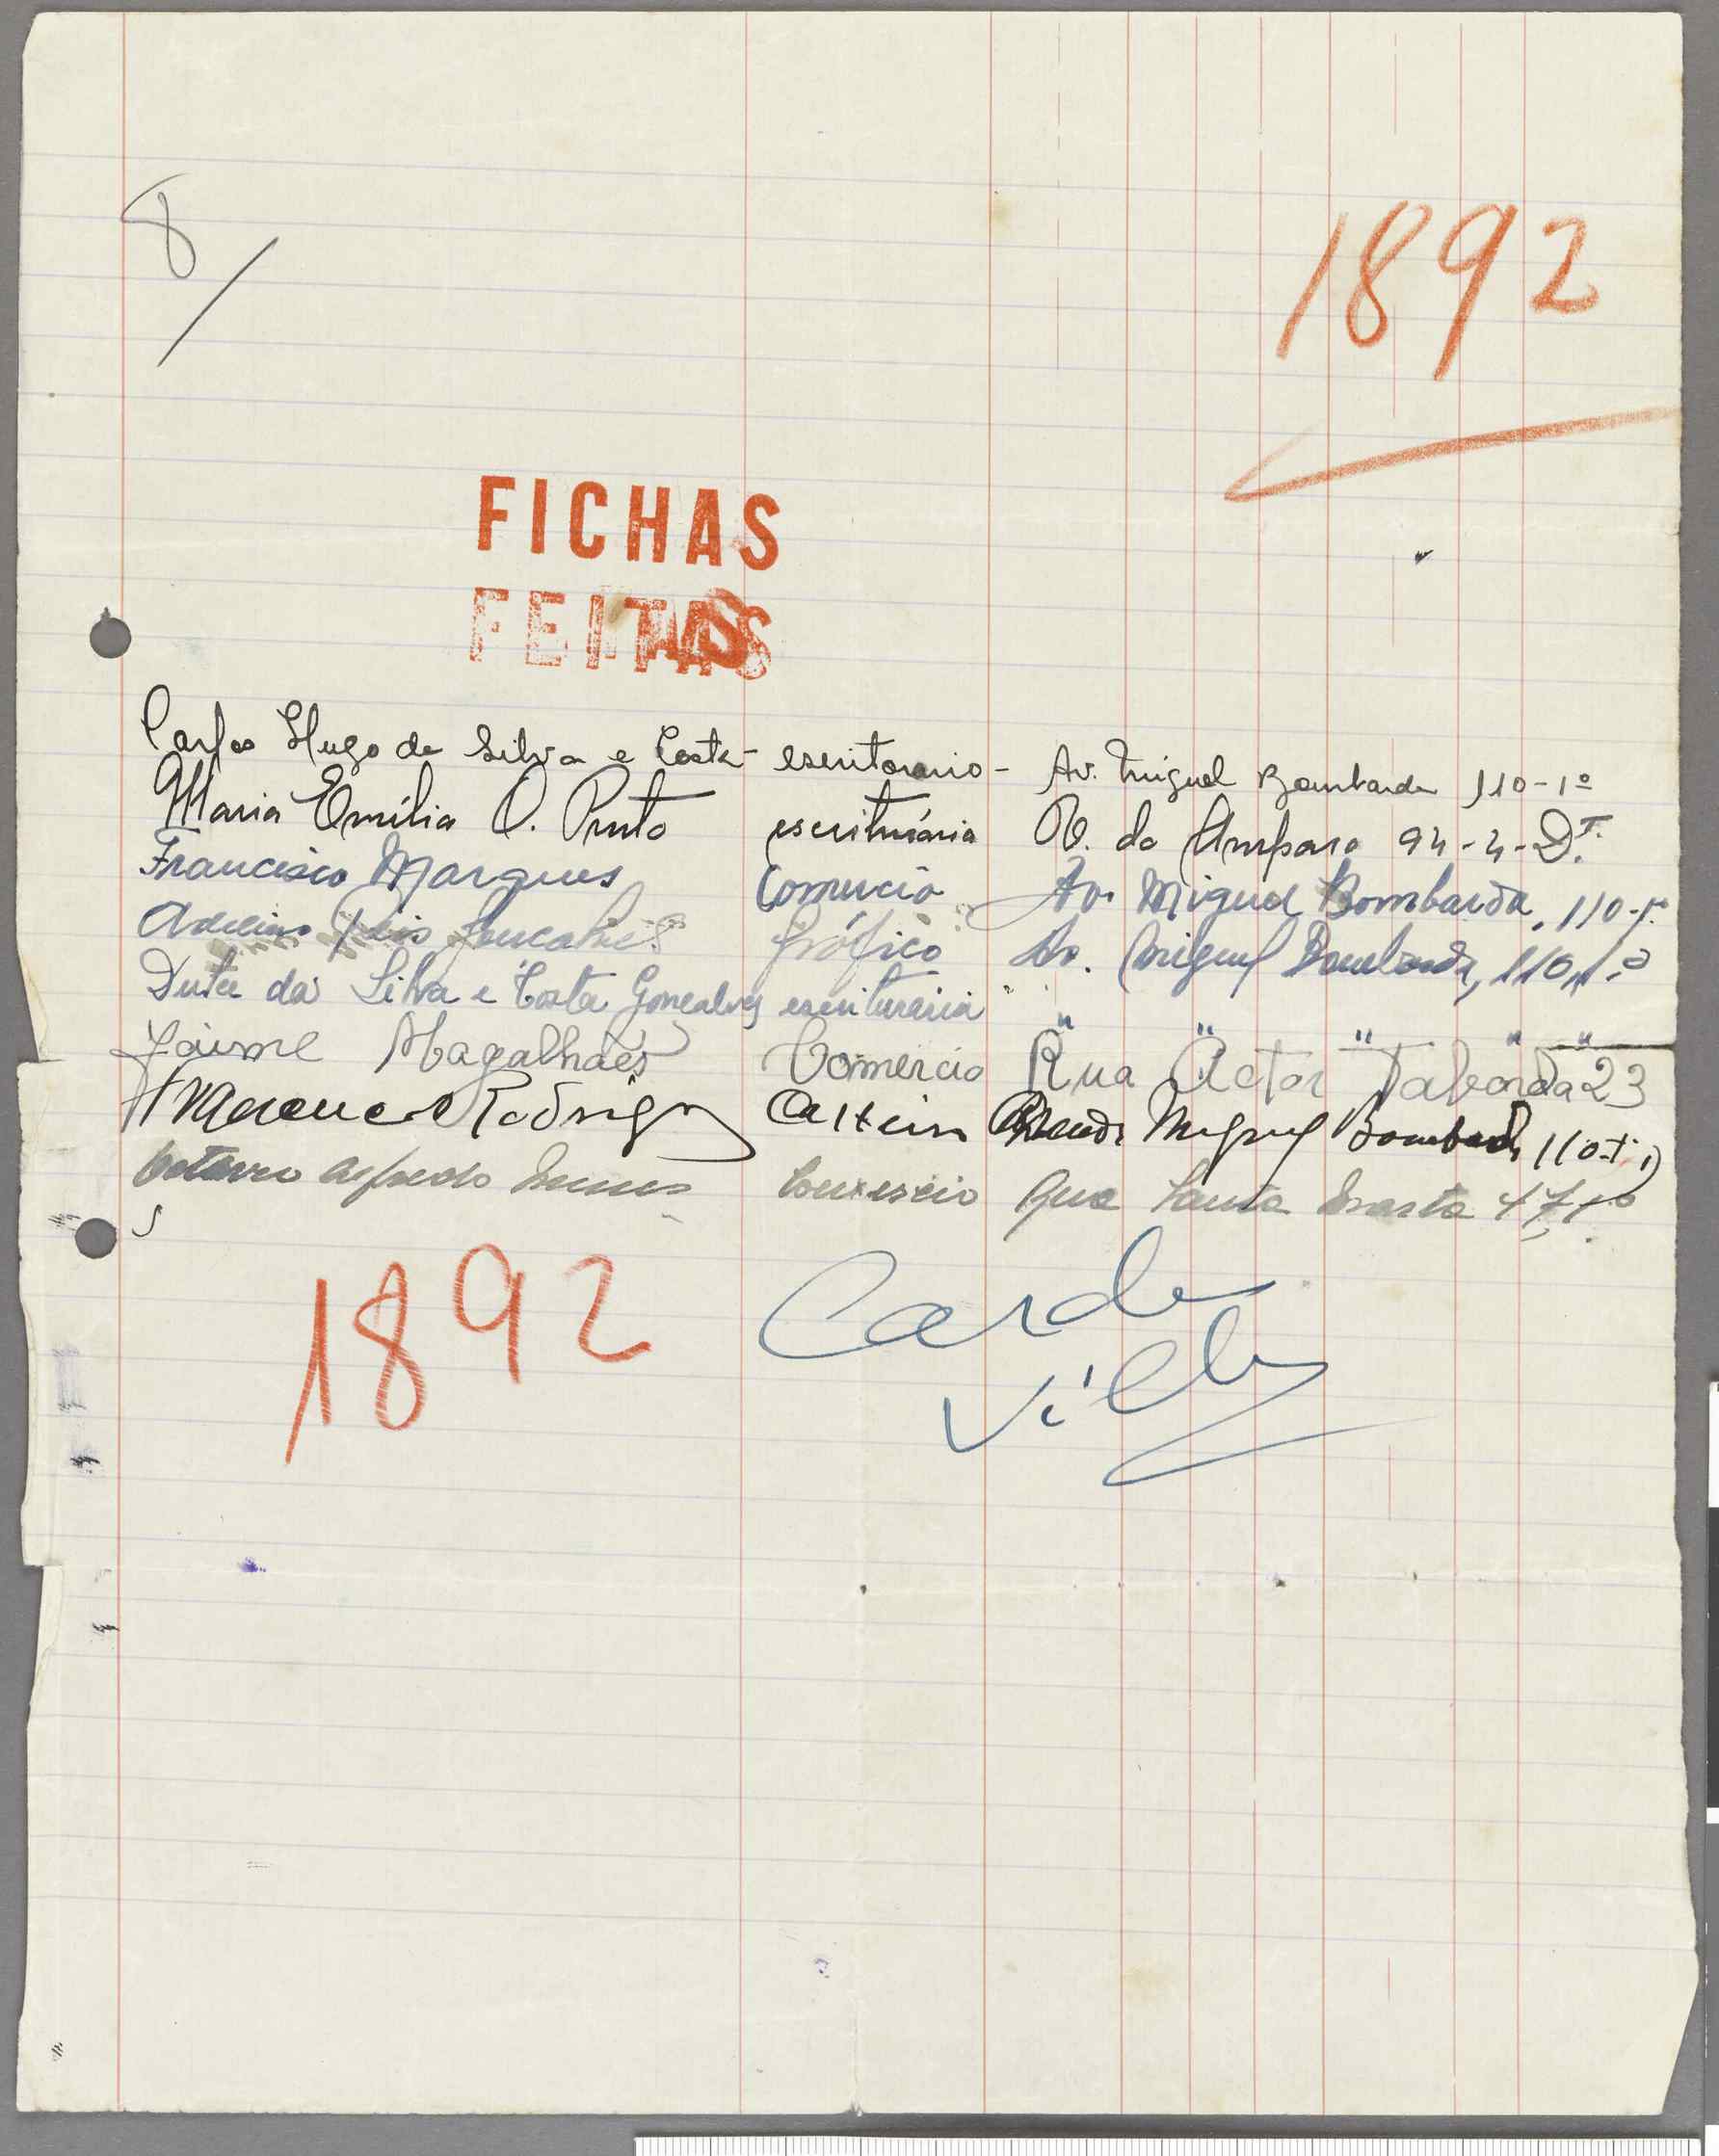 8
1892
FICHAS
FEITAS
Carlos Hugo da Silva e Costa - escriturario - Av. Miguel Bombarda 110-1º
Maria Emília O. Pinto escriturária R. do Amparo 94-4-DT.
Francisco Marques Comercio Av. Miguel Bombarda, 110-1º
Adelino Gonçalves Gráfico Av. Miguel Bombarda, 110, 1º
da Silva e Costa Gonçalves escrituraria " " " " "
Jaime Magalhães Comercio Rua Actor Taborda 23
Rodrigues Miguel Bombarda 110-1º
Alfredo Nunes Comercio Rua Santa Marta 47, 1º
1892